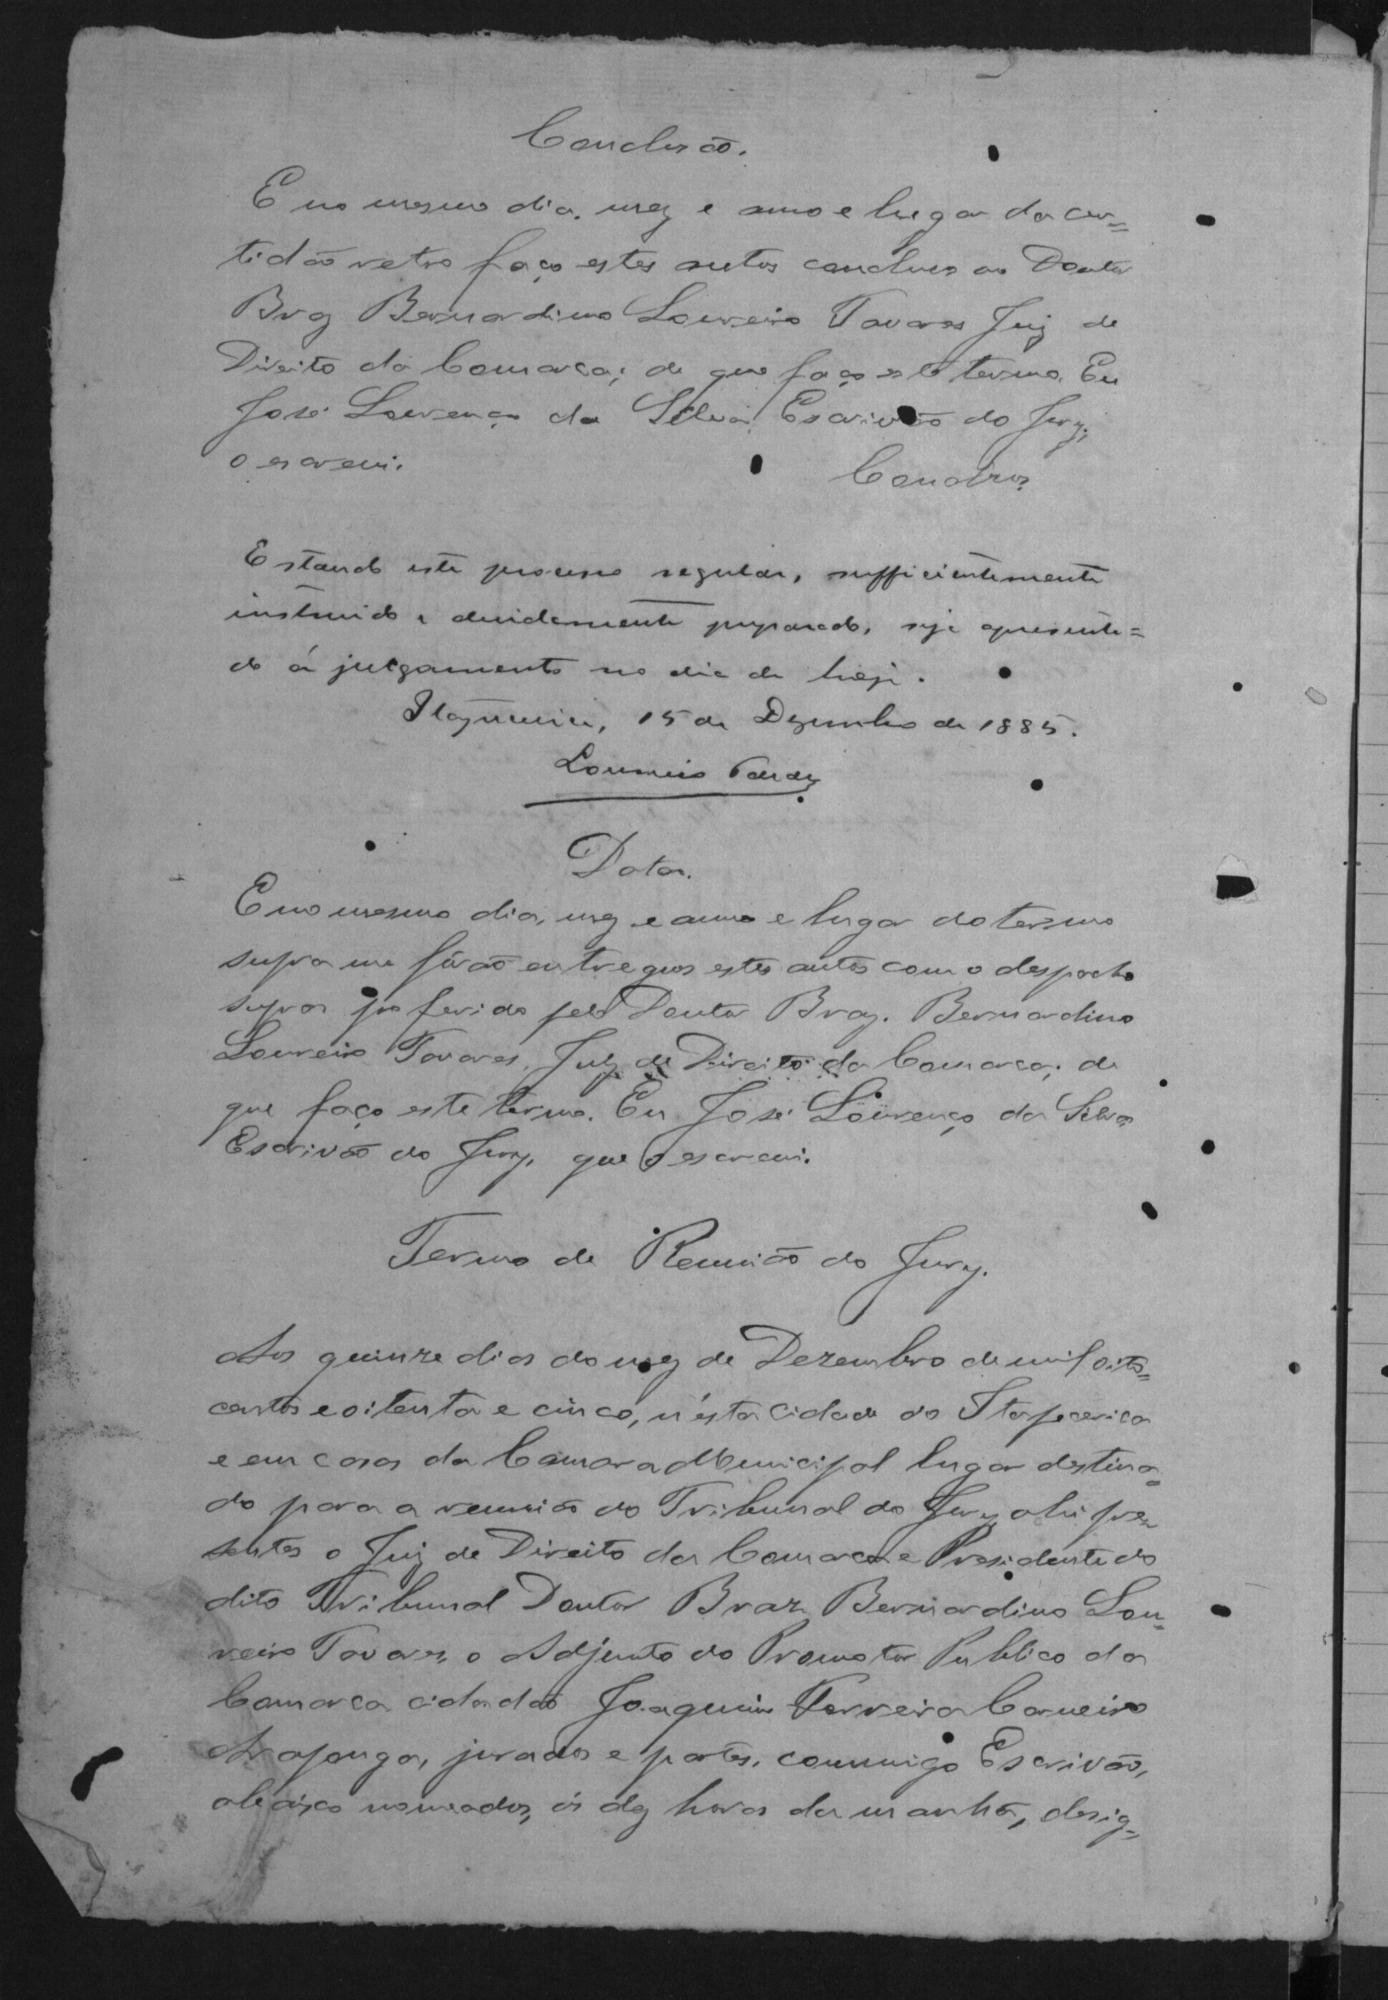 Conclusão.
E no mesmo dia, mez e anno e lugar da cer=
tidão retro faço estes autos conclusos ao Doutor
Braz Bernardino Loureiro Tavares Juiz de
Direito da Comarca; de que faço este termo. Eu
José Lourenço da Silva, Escrivão do Jury,
o escrevi.
Conclusos
Estando este processo regular, sufficientemente
instruido e devidamente preparado, seja apresenta=
do á julgamento no dia de hoje.
15 de Dezembro de 1885.
Loureiro Tavares
Data.
E no mesmo dia, mez e anno e lugar do termo
supra me fôrão entregues estes autos com o despacho
supra proferido pelo Doutor Braz. Bernardino
Loureiro Tavares, Juiz de Direito da Comarca; de
que faço este termo. Eu José Lourenço da Silva
Escrivão do Jury, que o escrevi.
Termo de Reunião do Jury.
Aos quinze dias do mez de Dezembro de mil oito=
centos e oitenta e cinco, n'ésta cidade do Itapecerica
e em casa da Camara Municipal lugar destina=
do para a reunião do Tribunal do Jury ahi pre=
sentes o Juiz de Direito da Comarca e Presidente do
dito Tribunal Doutor Braz Bernardino Lou=
reiro Tavares, o Adjunto do Promotor Publico da
Comarca cidadão Joaquim Ferreira Carneiro
Araponga, jurados e partes, commigo Escrivão,
abaixo nomeados, ás dez horas da manhã, desig=